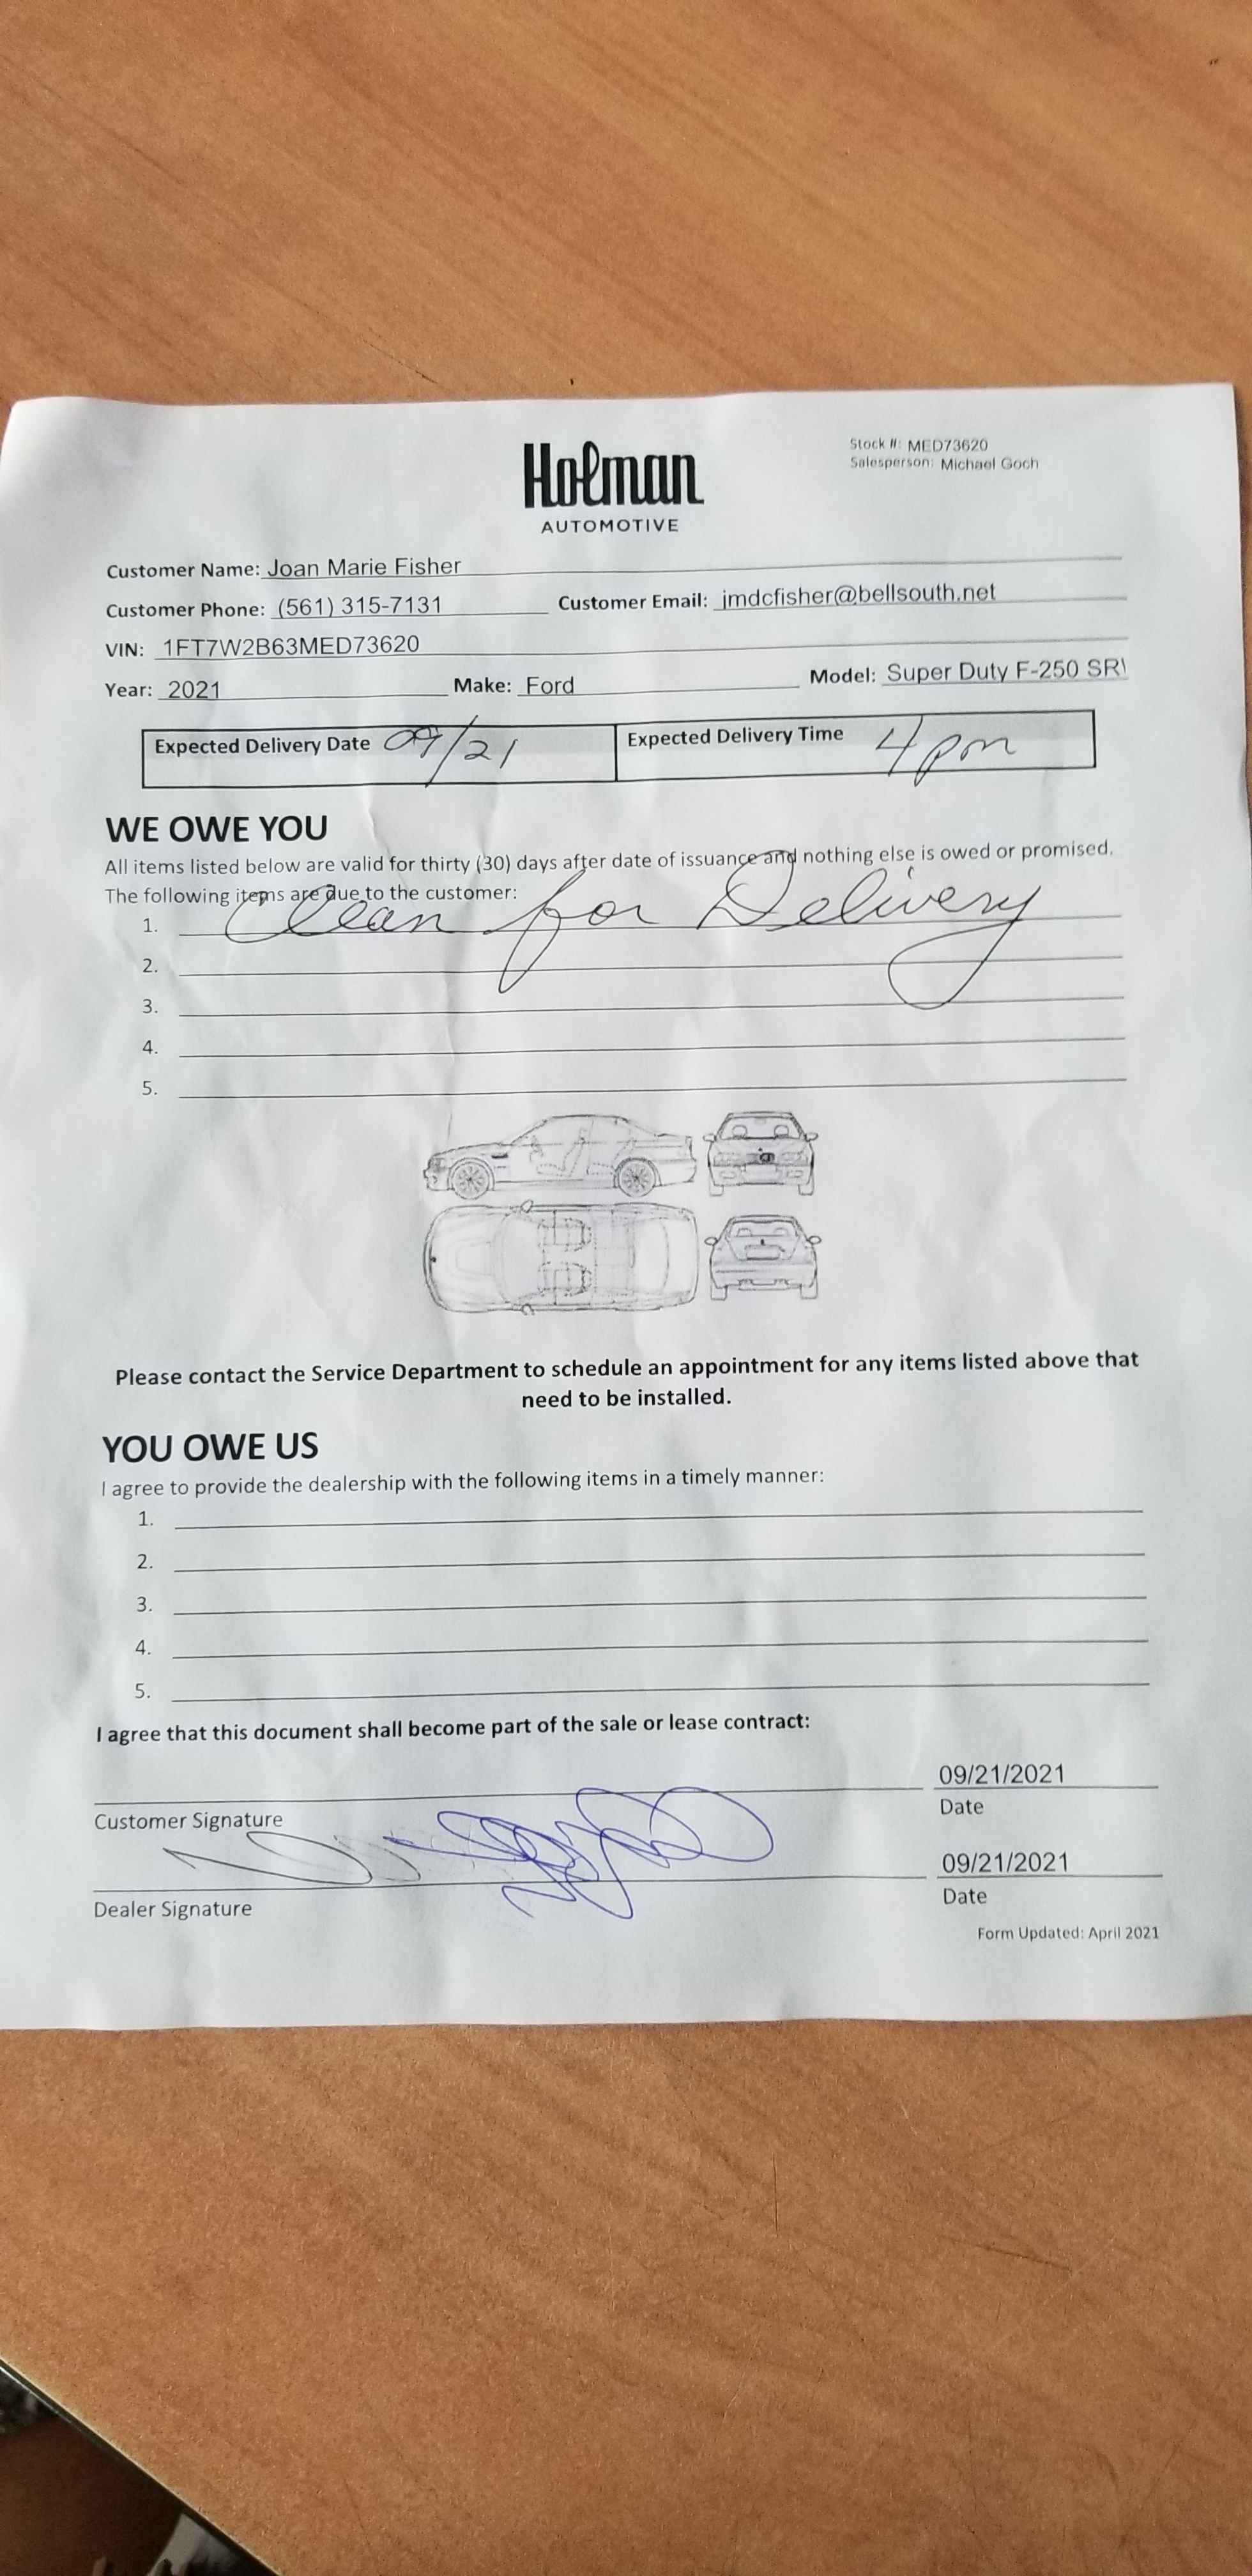 Holman
AUTOMOTIVE
Stock #: MED73620
Salesperson: Michael Goch
Customer Name: Joan Marie Fisher
Customer Phone: (561) 315-7131 Customer Email: jmdcfisher@bellsouth.net
VIN: 1FT7W2B63MED73620
Year: 2021 Make: Ford Model: Super Duty F-250 SR
Expected Delivery Date 09/21 Expected Delivery Time 4pm
WE OWE YOU
All items listed below are valid for thirty (30) days after date of issuance and nothing else is owed or promised.
The following items are due to the customer:
1. Clean for Delivery
2.
3.
4.
5.
Please contact the Service Department to schedule an appointment for any items listed above that
need to be installed.
YOU OWE US
I agree to provide the dealership with the following items in a timely manner:
1.
2.
3.
4.
5.
I agree that this document shall become part of the sale or lease contract:
09/21/2021
Customer Signature Date
09/21/2021
Dealer Signature Date
Form Updated: April 2021